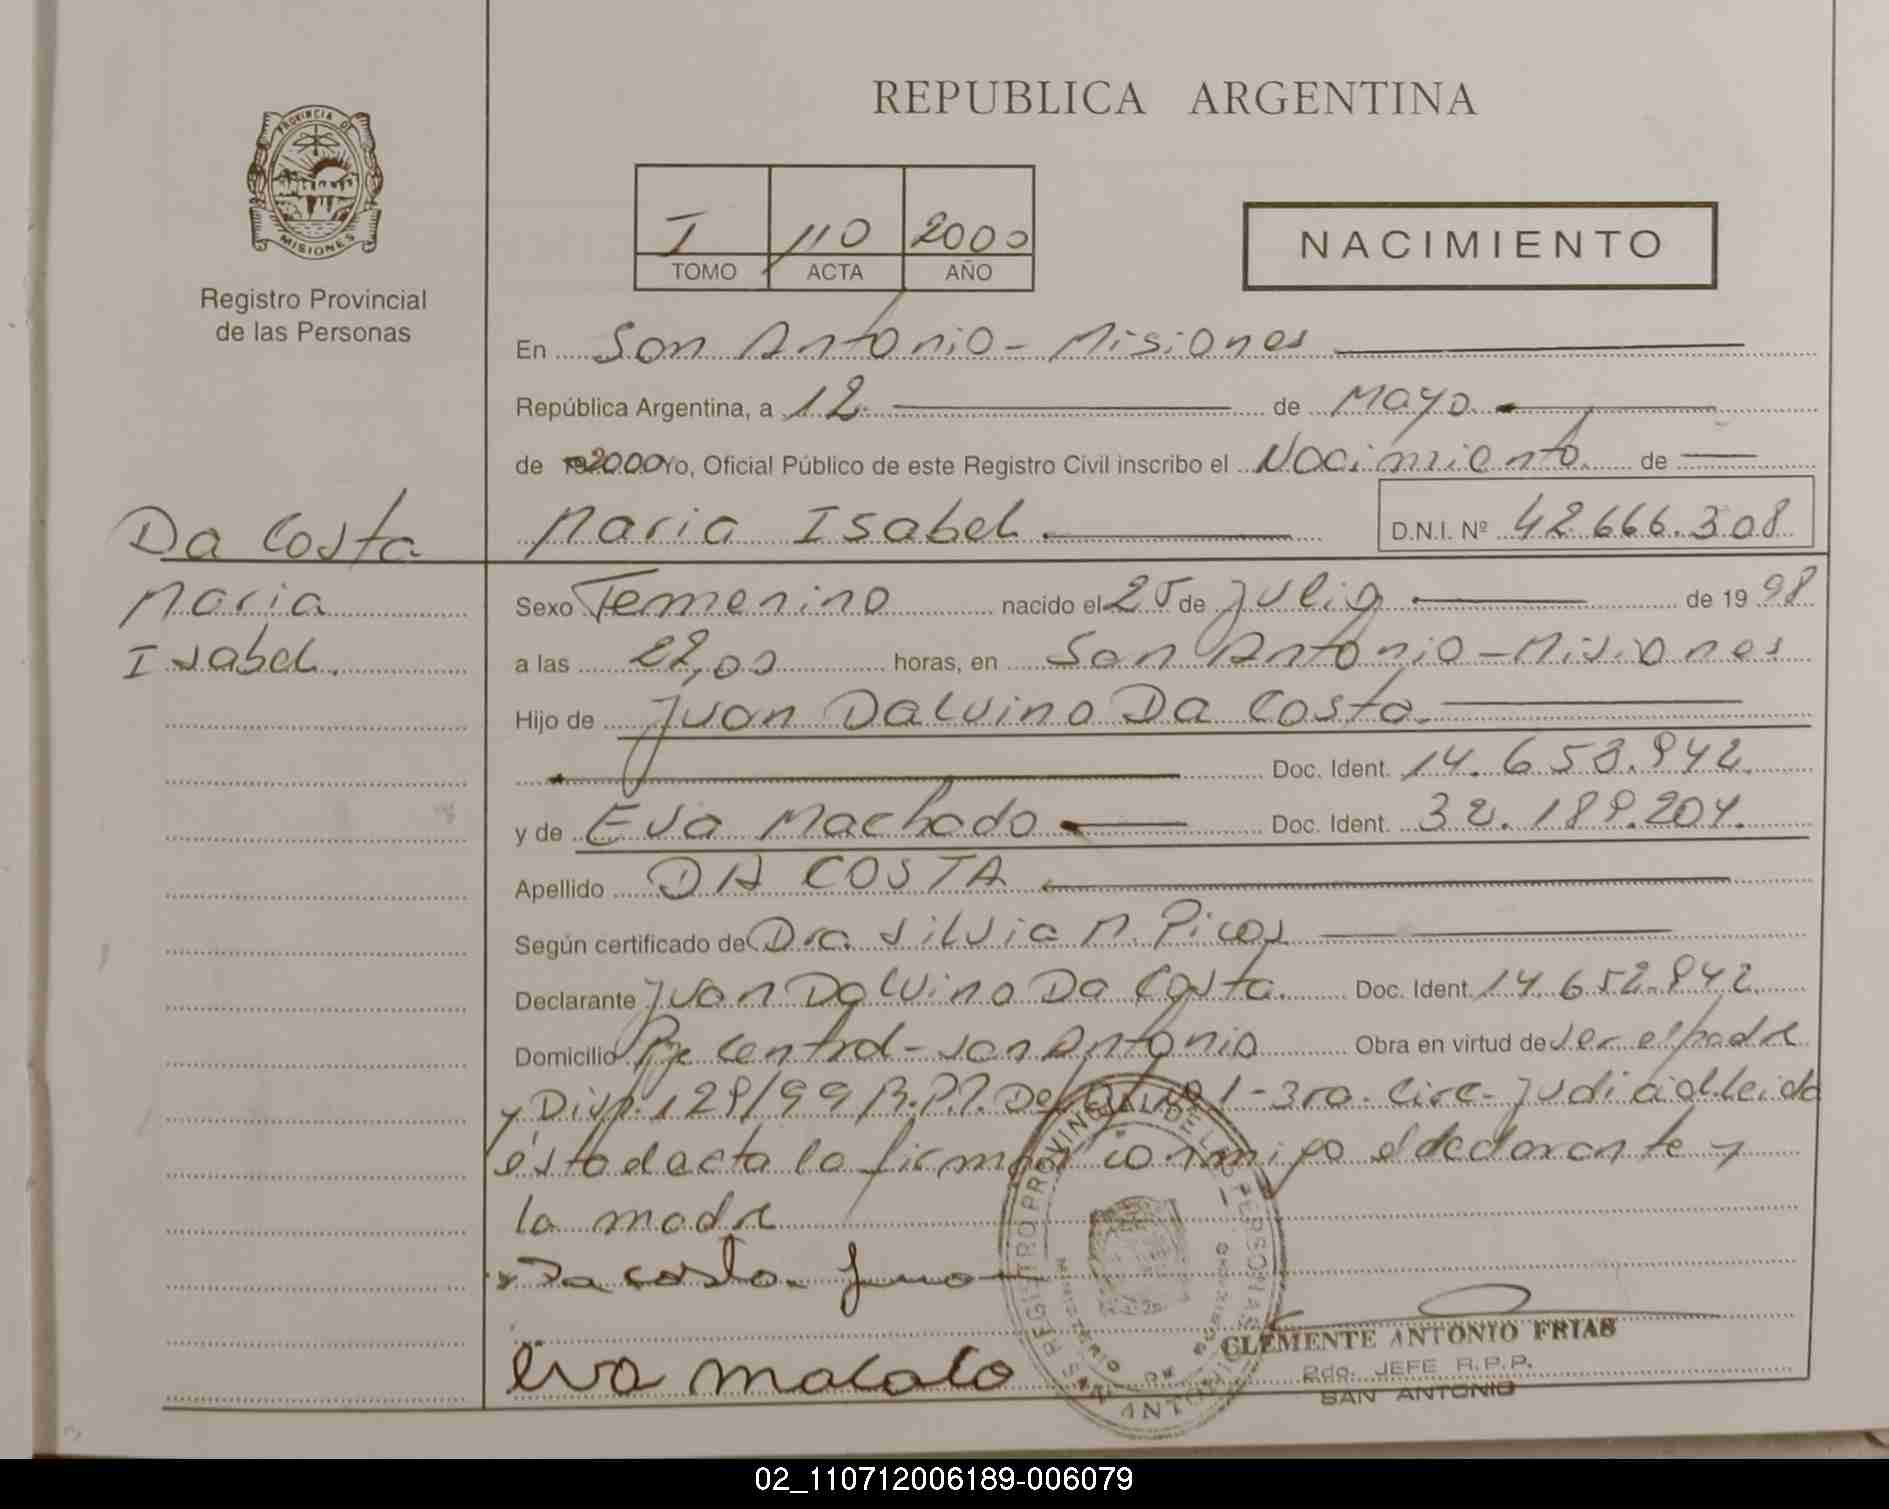 REPUBLICA ARGENTINA
PROVINCIA DE
MISIONES
Registro Provincial
de las Personas
I 110 2000
TOMO ACTA AÑO
NACIMIENTO
En San Antonio - Misiones
República Argentina, a 12 de Mayo
de 2000 Yo, Oficial Público de este Registro Civil inscribo el Nacimiento de
Maria Isabel D.N.I. Nº 42.666.308
Da Costa
Maria
Isabel.
Sexo Femenino nacido el 25 de Julio de 19 98
a las 22,00 horas, en San Antonio - Misiones
Hijo de Juan Dalvino Da Costa.
Doc. Ident. 14.653.942
y de Eva Machado Doc. Ident. 32.189.204.
Apellido DA COSTA
Según certificado de Dra. Silvia M. Picos
Declarante Juan Dalvino Da Costa. Doc. Ident. 14.652.942
Domicilio Central - San Antonio Obra en virtud de ser el padre
y Disp. 129/99 R.P.P. Def. 1 - 3ra. Circ. Judicial. Leida
ésta acta la firman conmigo el declarante y
la madre
Da costa Juan
Eva macalo
REGISTRO PROVINCIAL DE LAS PERSONAS
SAN ANTONIO
CLEMENTE ANTONIO FRIAS
2do. JEFE R.P.P.
SAN ANTONIO
02_110712006189-006079